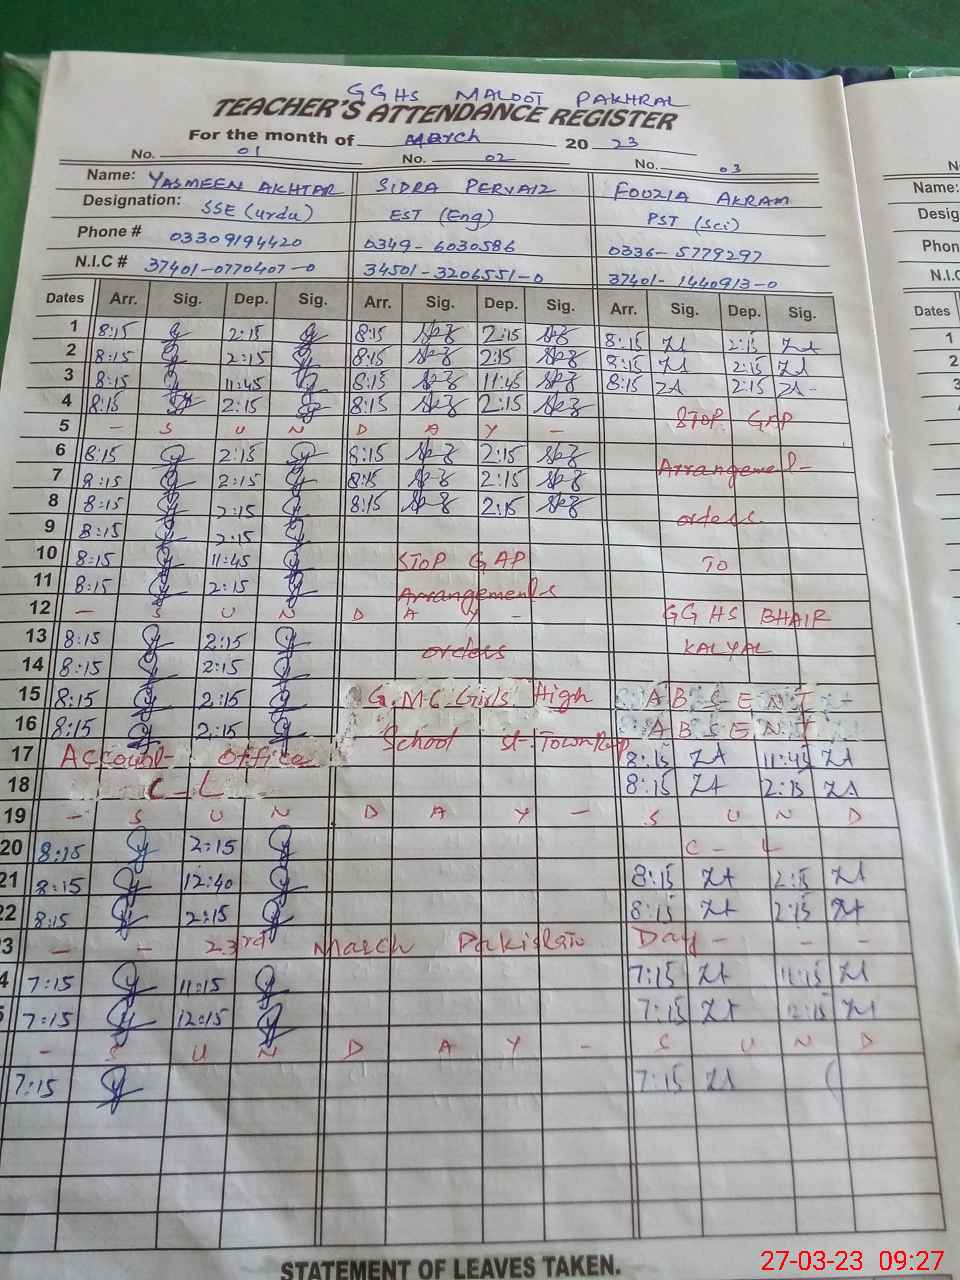 GGHS MALOOT PAKHRAL
TEACHER'S ATTENDANCE REGISTER
For the month of March 20 23
No. 01 No. 02 No. 03
Name: YASMEEN AKHTAR SIDRA PERVAIZ FOUZIA AKRAM
Designation: SSE (urdu) EST (Eng) PST (Sci)
Phone # 03309194420 0349-6030586 0336-5779297
N.I.C # 37401-0770407-0 34501-3206551-0 37401-1440913-0
Dates Arr. Sig. Dep. Sig. Arr. Sig. Dep. Sig. Arr. Sig. Dep. Sig.
1 8:15 2:15 8:15 2:15 8:15 ZA 2:15 ZA
2 8:15 2:15 8:15 2:15 8:15 ZA 2:15 ZA
3 8:15 11:45 8:15 11:45 8:15 ZA 2:15 ZA -
4 8:15 2:15 8:15 2:15 STOP GAP
5 - S U N D A Y -
6 8:15 2:15 8:15 2:15 Arrangement
7 8:15 2:15 8:15 2:15
8 8:15 2:15 8:15 2:15 orders
9 8:15 2:15
10 8:15 11:45 STOP GAP TO
11 8:15 2:15 Arrangements
12 - S U N D A Y - GGHS BHAIR
13 8:15 2:15 orders KALYAL
14 8:15 2:15
15 8:15 2:15 G.M.C Girls High A B S E N T -
16 8:15 2:15 School st. Town A B S E N T
17 Account office 8:15 ZA 11:45 ZA
18 C - L 8:15 ZA 2:15 ZA
19 - S U N D A Y - S U N D
20 8:15 2:15 C - L
21 8:15 12:40 8:15 ZA 2:15 ZA
22 8:15 2:15 8:15 ZA 2:15 ZA
3 - - 23rd March Pakistan Day - - -
4 7:15 11:15 7:15 ZA 11:15 ZA
5 7:15 12:15 7:15 ZA 12:15 ZA
- S U N D A Y - S U N D
7:15 7:15 ZA
STATEMENT OF LEAVES TAKEN.
Name:
Desig
Phon
N.I.C
Dates
1
2
3
27-03-23 09:27